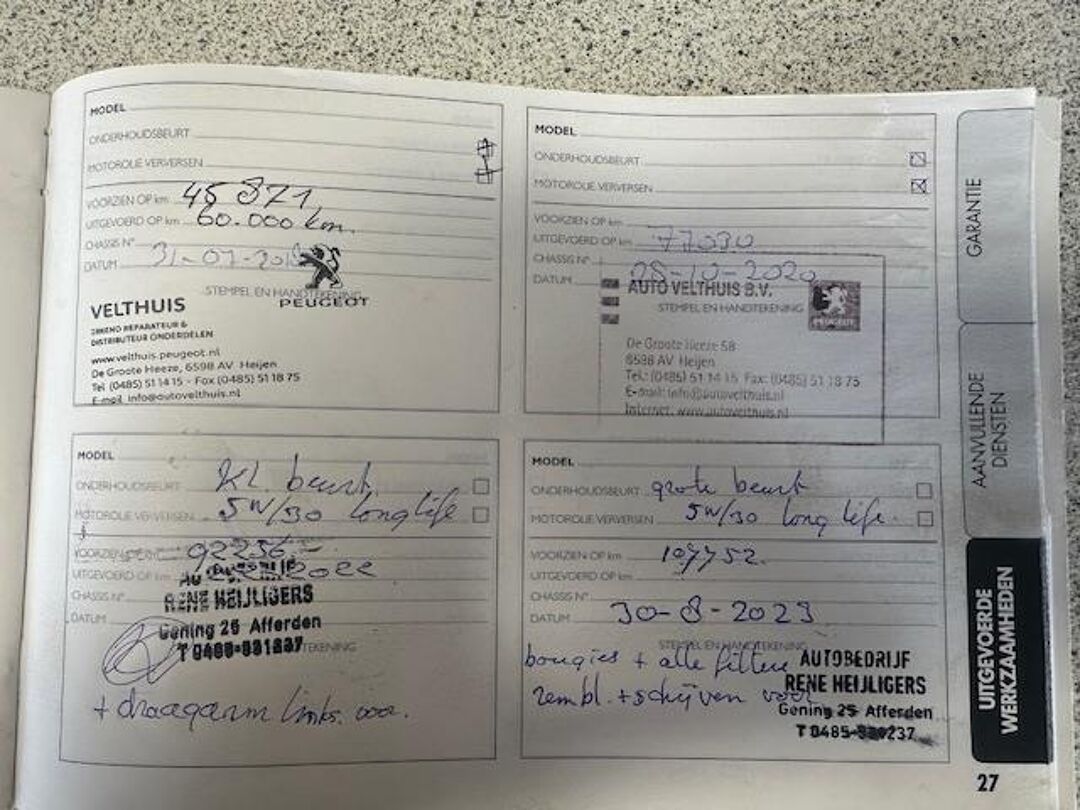 MODEL
ONDERHOUDSBEURT
MOTOROLIE VERVERSEN
VOORZIEN OP km 45 871
UITGEVOERD OP km 60.000 km.
CHASSIS N°
DATUM 31-01-201
STEMPEL EN HANDTEKENING
PEUGEOT
VELTHUIS
ERKEND REPARATEUR &
DISTRIBUTEUR ONDERDELEN
www.velthuis.peugeot.nl
De Groote Heeze, 6598 AV Heijen
Tel (0485) 51 14 15 - Fax (0485) 51 18 75
E-mail info@autovelthuis.nl
MODEL
ONDERHOUDSBEURT
MOTOROLIE VERVERSEN
VOORZIEN OP km
UITGEVOERD OP km 77030
CHASSIS N°
DATUM 28-10-2020
AUTO VELTHUIS B.V.
STEMPEL EN HANDTEKENING
PEUGEOT
De Groote Heeze 58
6598 AV Heijen
Tel.: (0485) 51 14 15 Fax: (0485) 51 18 75
E-mail: info@autovelthuis.nl
Internet: www.autovelthuis.nl
MODEL
ONDERHOUDSBEURT Kl. beurt
MOTOROLIE VERVERSEN 5W/30 longlife
VOORZIEN OP km 92256
UITGEVOERD OP km 2022
CHASSIS N° RENE HEIJLIGERS
DATUM Gening 25 Afferden
T 0485-531237
HANDTEKENING
+ draagarm links voor.
MODEL
ONDERHOUDSBEURT grote beurt
MOTOROLIE VERVERSEN 5W/30 long life.
VOORZIEN OP km 107752
UITGEVOERD OP km
CHASSIS N°
DATUM 30-8-2023
STEMPEL EN HANDTEKENING
bougies + alle filters
rembl. + schijven voor
AUTOBEDRIJF
RENE HEIJLIGERS
Gening 25 Afferden
T 0485-531237
GARANTIE
AANVULLENDE
DIENSTEN
UITGEVOERDE
WERKZAAMHEDEN
27